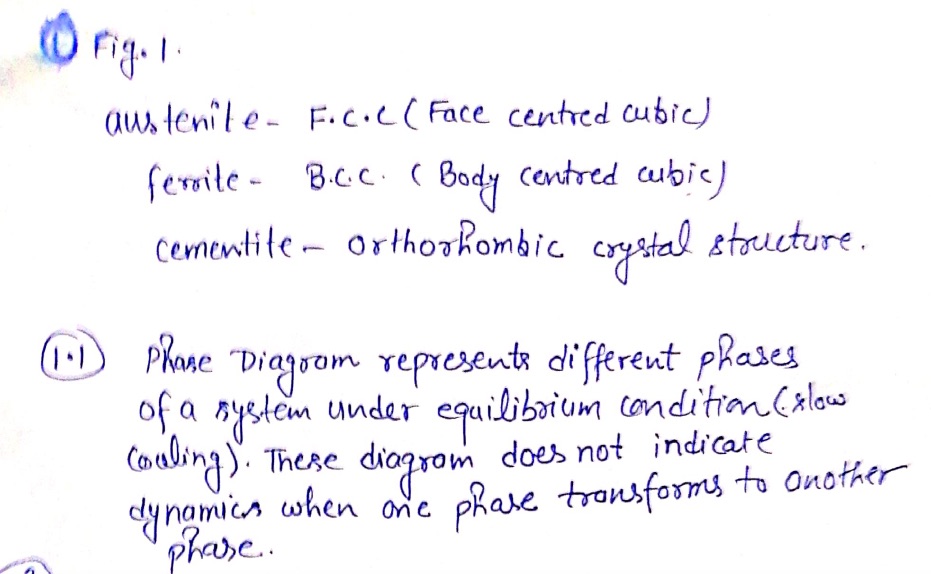 ① Fig. 1.
austenite - F.C.C (Face centred cubic)
ferrite - B.C.C. (Body centred cubic)
cementite - orthorhombic crystal structure.
1.1 Phase Diagram represents different phases
of a system under equilibrium condition (slow
cooling). These diagram does not indicate
dynamics when one phase transforms to another
phase..